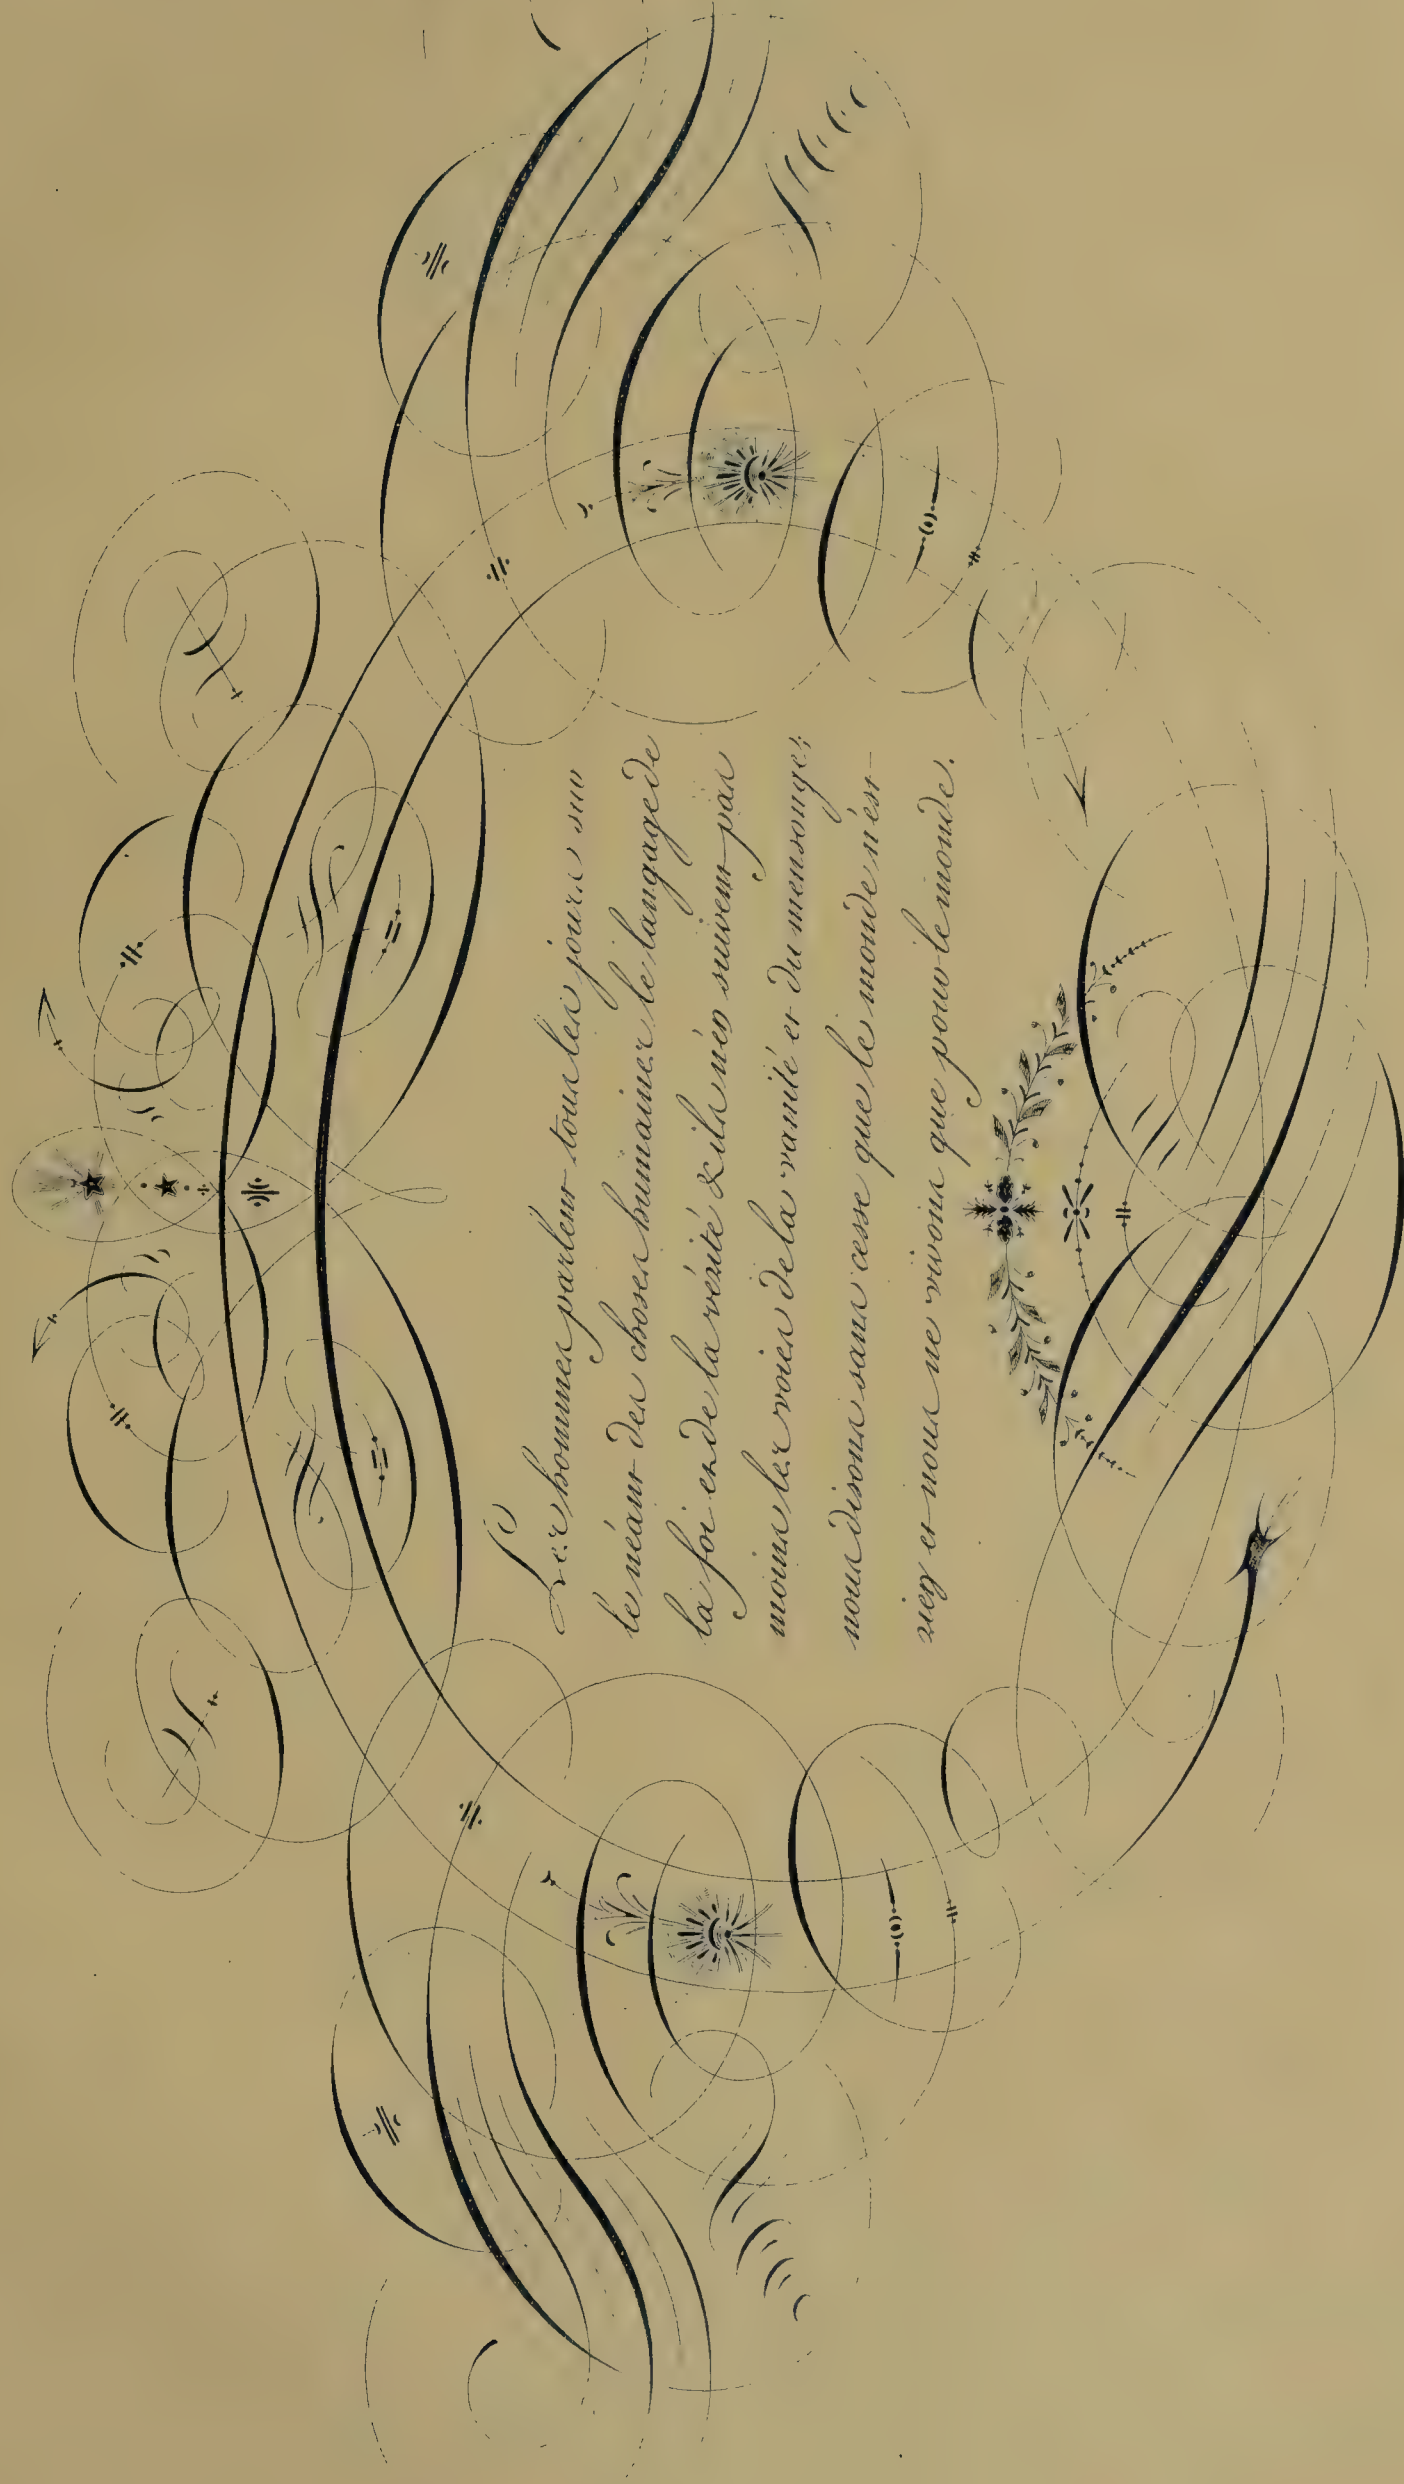 Les hommes parlent tous les jours sur
le néant des choses humaines le langage de
la foi et de la vérité & ils n'en suivent pas
moins les voies de la vanité et du mensonge;
nous disons sans cesse que le monde n'est
rien et nous ne vivons que pour le monde.